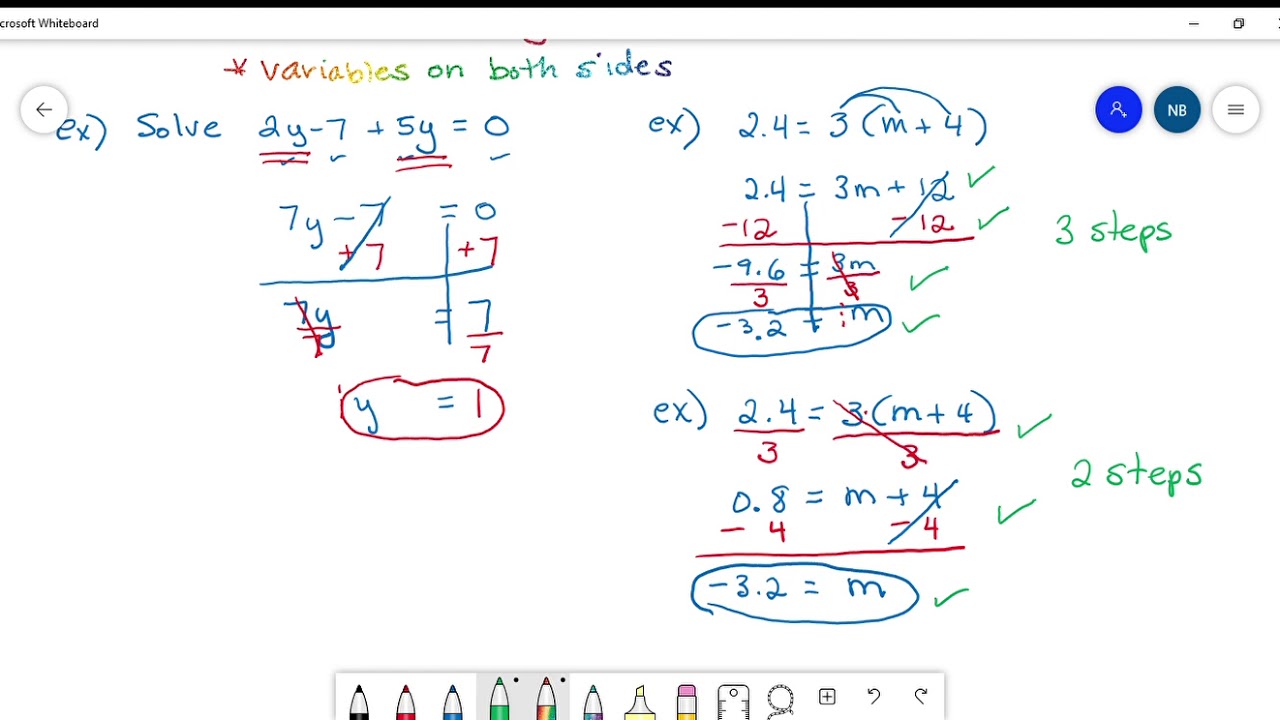 crosoft Whiteboard
* variables on both sides
NB
ex) Solve 2y-7 + 5y = 0
7y - 7 = 0
+7 +7
7y = 7
7 7
y = 1
ex) 2.4 = 3(m + 4)
2.4 = 3m + 12
-12 -12
-9.6 = 3m
3 3
-3.2 = m
3 steps
ex) 2.4 = 3·(m + 4)
3 3
0.8 = m + 4
- 4 - 4
-3.2 = m
2 steps